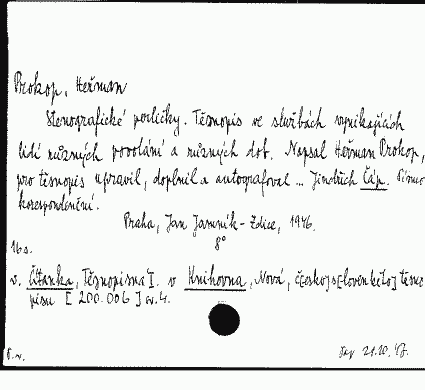 Prokop, Heřman
Stenografické perličky. Těsnopis ve službách vynikajících
lidí různých povolání a různých dob. Napsal Heřman Prokop,
pro těsnopis upravil, doplnil a autografoval ... Jindřich Čáp. Písmo
korespondenční.
Praha, Jan Jamník - Zdice, 1946.
8°
16 s.
v. Čítanka, Těsnopisná I. v Knihovna, Nová, česko[s[lovenského] těsno
pisu [ 200.006 ] sv. 4.
21.10.47.